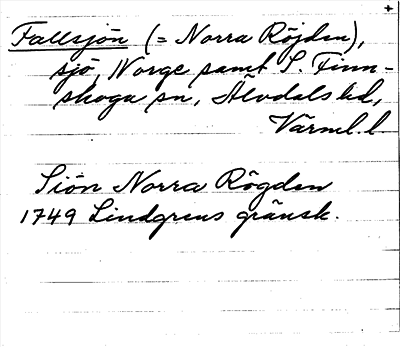 Fallsjön (= Norra Röjden),
sjö, Norge samt S. Finn-
skoga sn, Älvdals hd,
Värml. l.
Siön Norra Rögden
1749 Lindgrens gränsk.